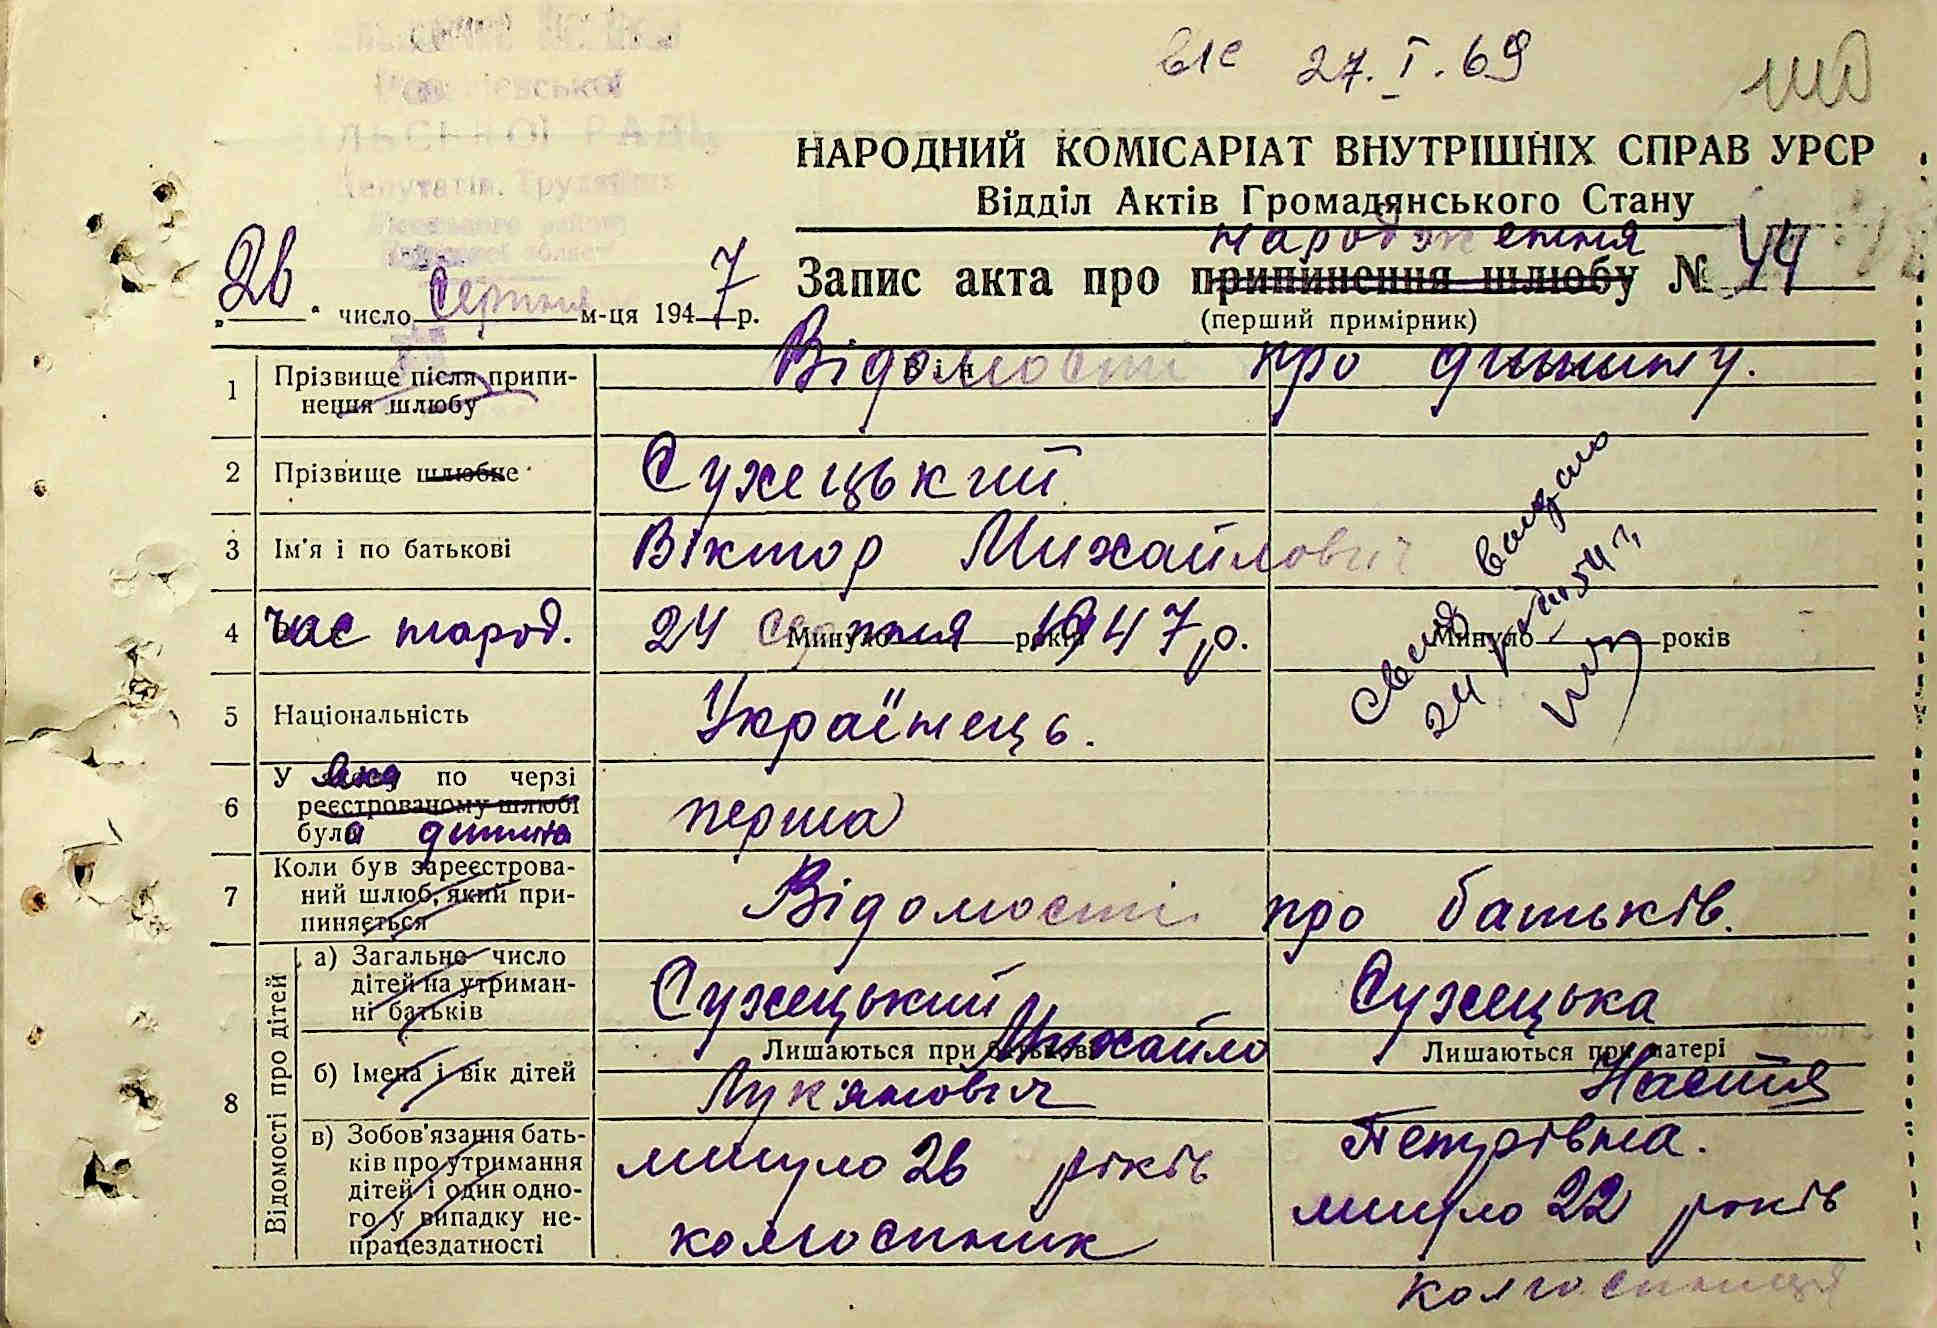 віє 27.I.69
ївської
ІЛЬСЬКОЇ РАДИ
Депутатів Трудящих
НАРОДНИЙ КОМІСАРІАТ ВНУТРІШНІХ СПРАВ УРСР
Відділ Актів Громадянського Стану
народження
„26“ число Серпня м-ця 1947 р.
Запис акта про припинення шлюбу № 44
(перший примірник)
1 Прізвище після припи-
нення шлюбу
Він
Відомості про дитину.
2 Прізвище шлюбне Сухецький
3 Ім'я і по батькові Віктор Михайлович
видано
4 час народ. 24 серпня 1947 р.
Минуло років
Минуло років
24
5 Національність Українець.
6 У яка по черзі
реєстрованому шлюбі
була дитина
перша
7 Коли був зареєстрова-
ний шлюб, який при-
пиняється
Відомості про батьків.
8 Відомості про дітей
а) Загальне число
дітей на утриман-
ні батьків
Сухецький Сухецька
б) Імена і вік дітей
Лишаються при батькові Михайло
Лук'янович
Лишаються при матері
Настя
в) Зобов'язання бать-
ків про утримання
дітей і один одно-
го у випадку не-
працездатності
минуло 26 років
колгоспник
Петрівна.
минуло 22 років
колгоспниця